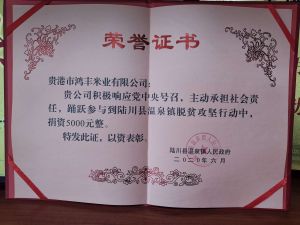 荣誉证书
贵港市鸿丰米业有限公司：
贵公司积极响应党中央号召，主动承担社会责
任，踊跃参与到陆川县温泉镇脱贫攻坚行动中，
捐资5000元整。
特发此证，以资表彰。
陆川县温泉镇人民政府
二〇二〇年六月